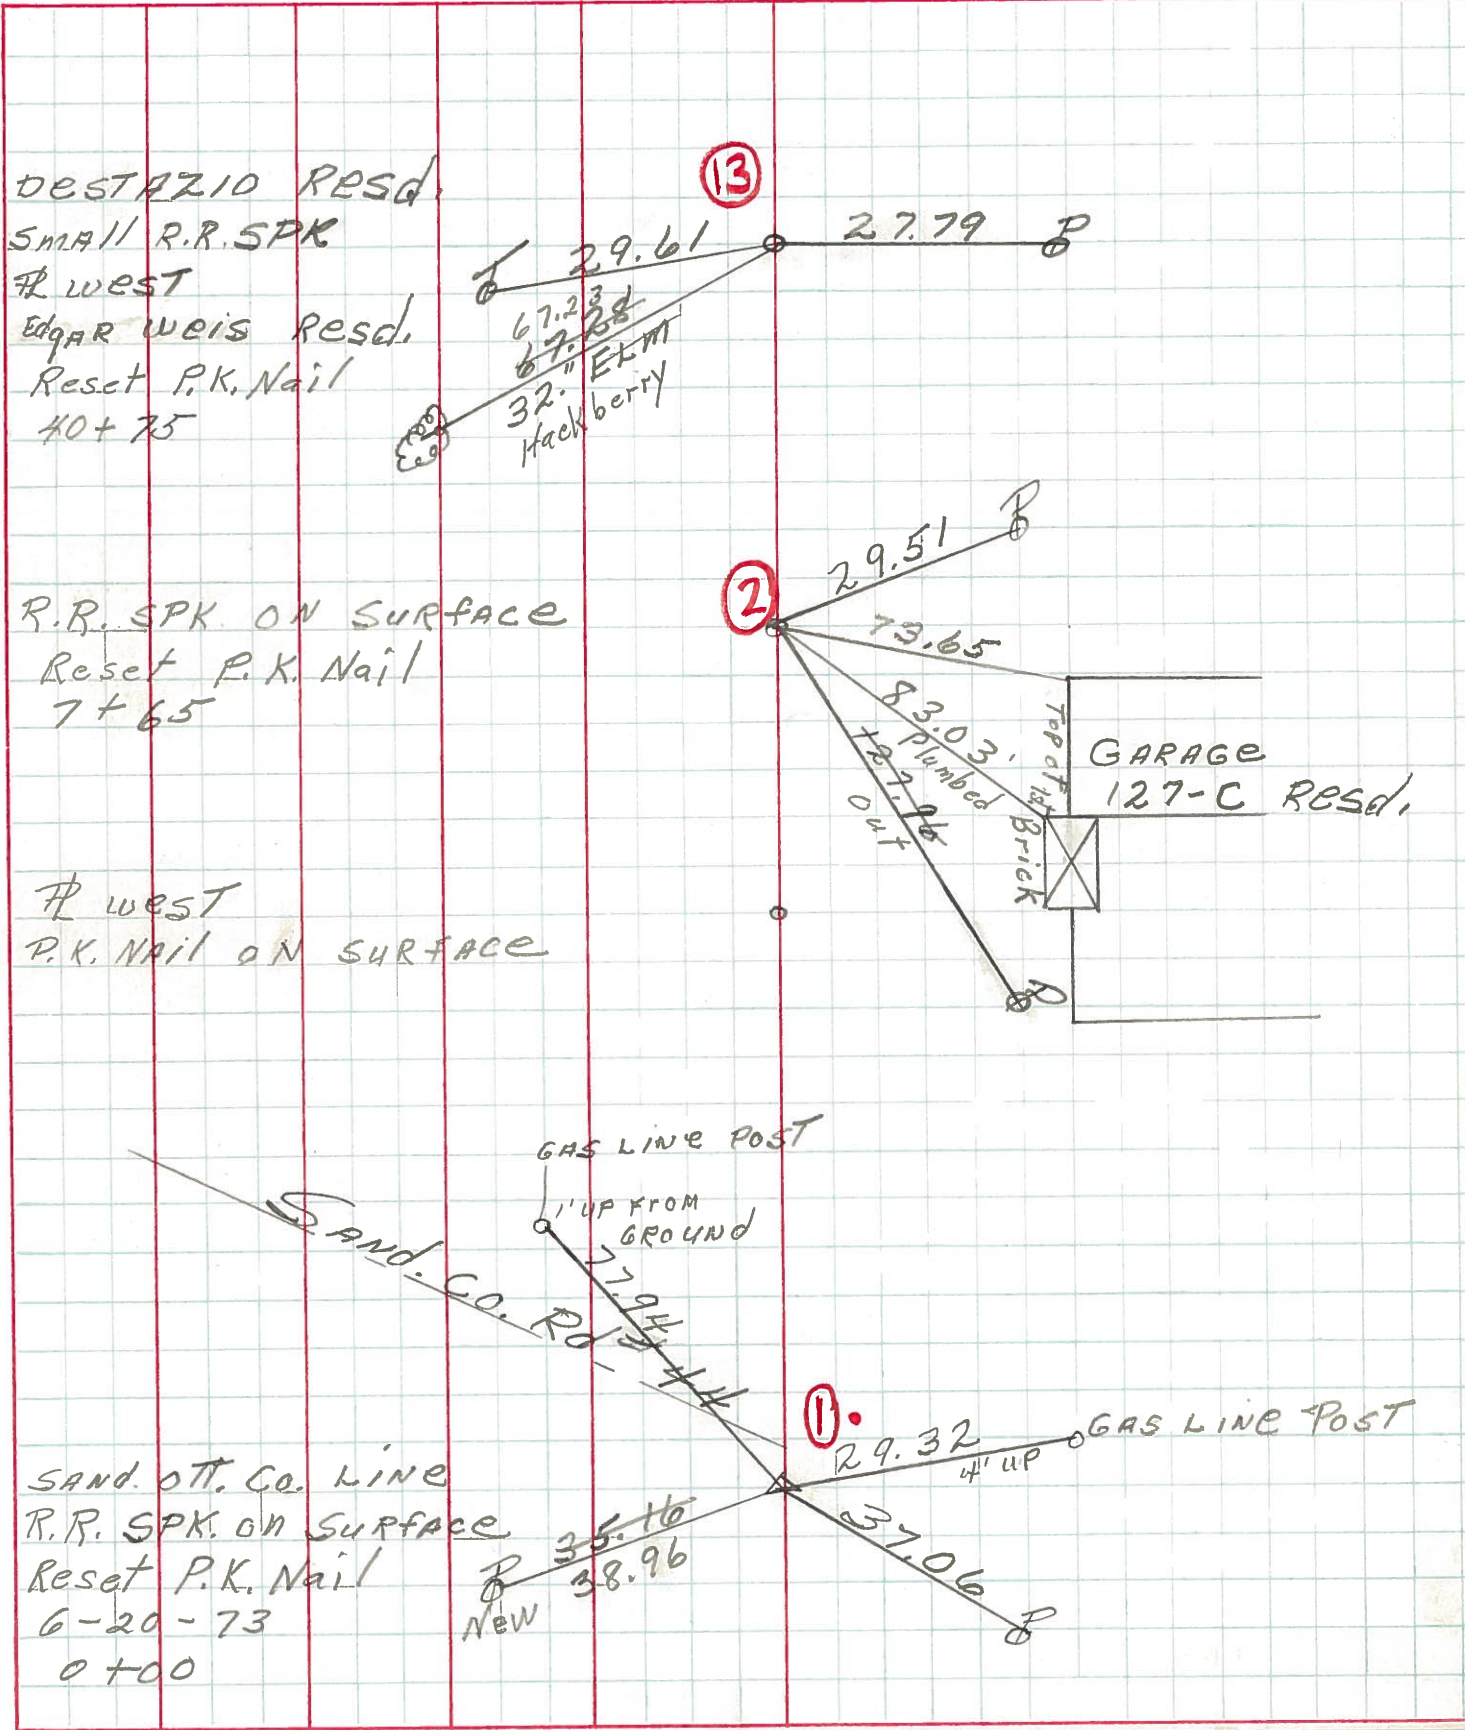 13
DESTAZIO Resd.
Small R.R. SPK
PL west
Edgar Weis Resd.
Reset P.K. Nail
40+75
T
29.61
27.79
P
67.23
67.28
32." ELM
Hackberry
2
29.51
P
R.R. SPK ON SURFACE
Reset P.K. Nail
7+65
73.65
83.03'
Plumbed
127.96
out
Top of 1st
Brick
GARAGE
127-C Resd.
PL west
P.K. NAil ON SURFACE
P
GAS LINE POST
1' UP FROM
GROUND
77.94
SAND. CO. Rd # 44
1.
29.32
4' UP
GAS LINE POST
SAND. OTT. CO. LINE
R.R. SPK. ON SURFACE
Reset P.K. Nail
6-20-73
0+00
35.16
38.96
P
New
37.06
P